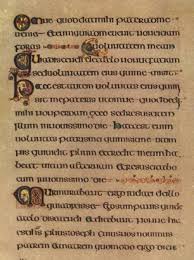 Omne quod dat mihi pater ad me
foras uoluntatem meam
sed uoluntatem eius qui me misit
haec est autem uoluntas eius qui mi
sit me patris ut omne quod dedit
mihi non perdam ex eo sed resusci
tem illum nouissimo die haec est
enim uoluntas patris mei qui misit
me ut omnis qui uidet
filium et credit in eum ha
beat uitam aeternam et resuscitabo
eum in nouissimo die
Murmurabant ergo iudaei de illo
quia dixisset ego sum panis qui de
caelo discendi et dicebant nonne hic
est ihs filius ioseph cuius nos nouimus
patrem et matrem quomodo ergo dicit